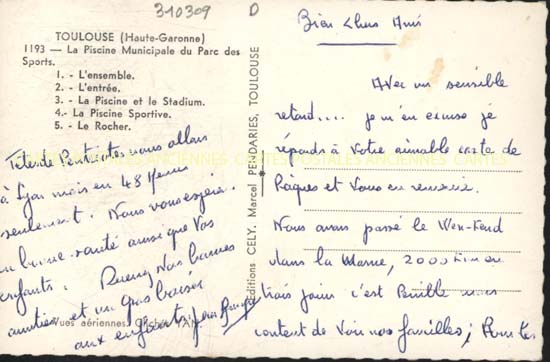 310309 D
TOULOUSE (Haute-Garonne)
1193 — La Piscine Municipale du Parc des
Sports.
1. - L'ensemble.
2. - L'entrée.
3. - La Piscine et le Stadium.
4. - La Piscine Sportive.
5. - Le Rocher.
Editions CELY, Marcel PENDARIES, TOULOUSE
CARTES POSTALES ANCIENNES CARTES
Bien Chers Amis
Avec un sensible
retard.... je m'en excuse je
réponds à Votre aimable carte de
Pâques et Vous en remercie.
Nous avons passé le Week-End
dans la Marne, 2000 Km en
trois jours c'est Penible mais
content de Voir nos familles; Pour les
Fêtes de Pentecotes nous allons
à Lyon mais en 48 Heures
seulement. Nous vous espérons
en bonne santé ainsi que Vos
enfants. Recevez Nos bonnes
amitiés et un gros baiser
aux enfants
Vues aériennes